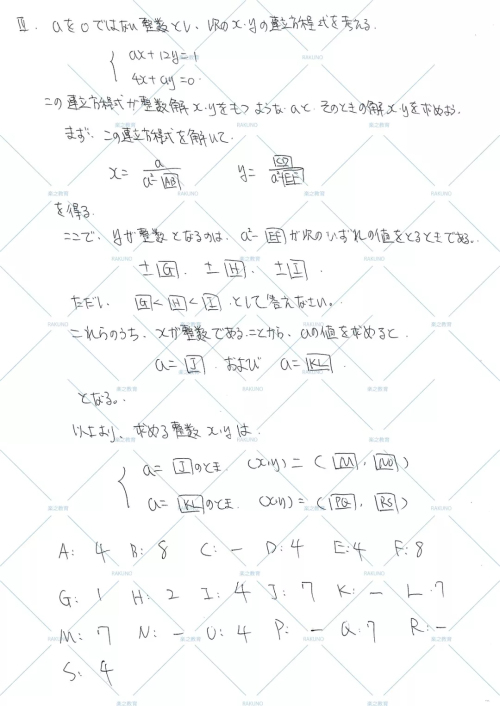 Ⅲ. aを0ではない整数とし、次のx・yの連立方程式を考える.
ax+12y=1
4x+ay=0.
この連立方程式が整数解x・yをもつようなaと、そのときの解x・yを求めよう.
まず、この連立方程式を解いて.
x= a / a²-[AB] y= [CD] / a²-[EF]
を得る.
ここで、yが整数となるのは、a²-[EF]が次のいずれの値をとるときである。
±[G]. ±[H]. ±[I].
ただし、[G]<[H]<[I].として答えなさい。
これらのうち、xが整数であることから、aの値を求めると.
a=[J].および a=[KL]
となる。
以上より、求める整数x・yは.
a=[J]のとき. (x,y)=([M], [NO])
a=[KL]のとき. (x,y)=([PQ], [RS])
A: 4 B: 8 C: - D: 4 E: 4 F: 8
G: 1 H: 2 I: 4 J: 7 K: - L: 7
M: 7 N: - O: 4 P: - Q: 7 R: -
S: 4